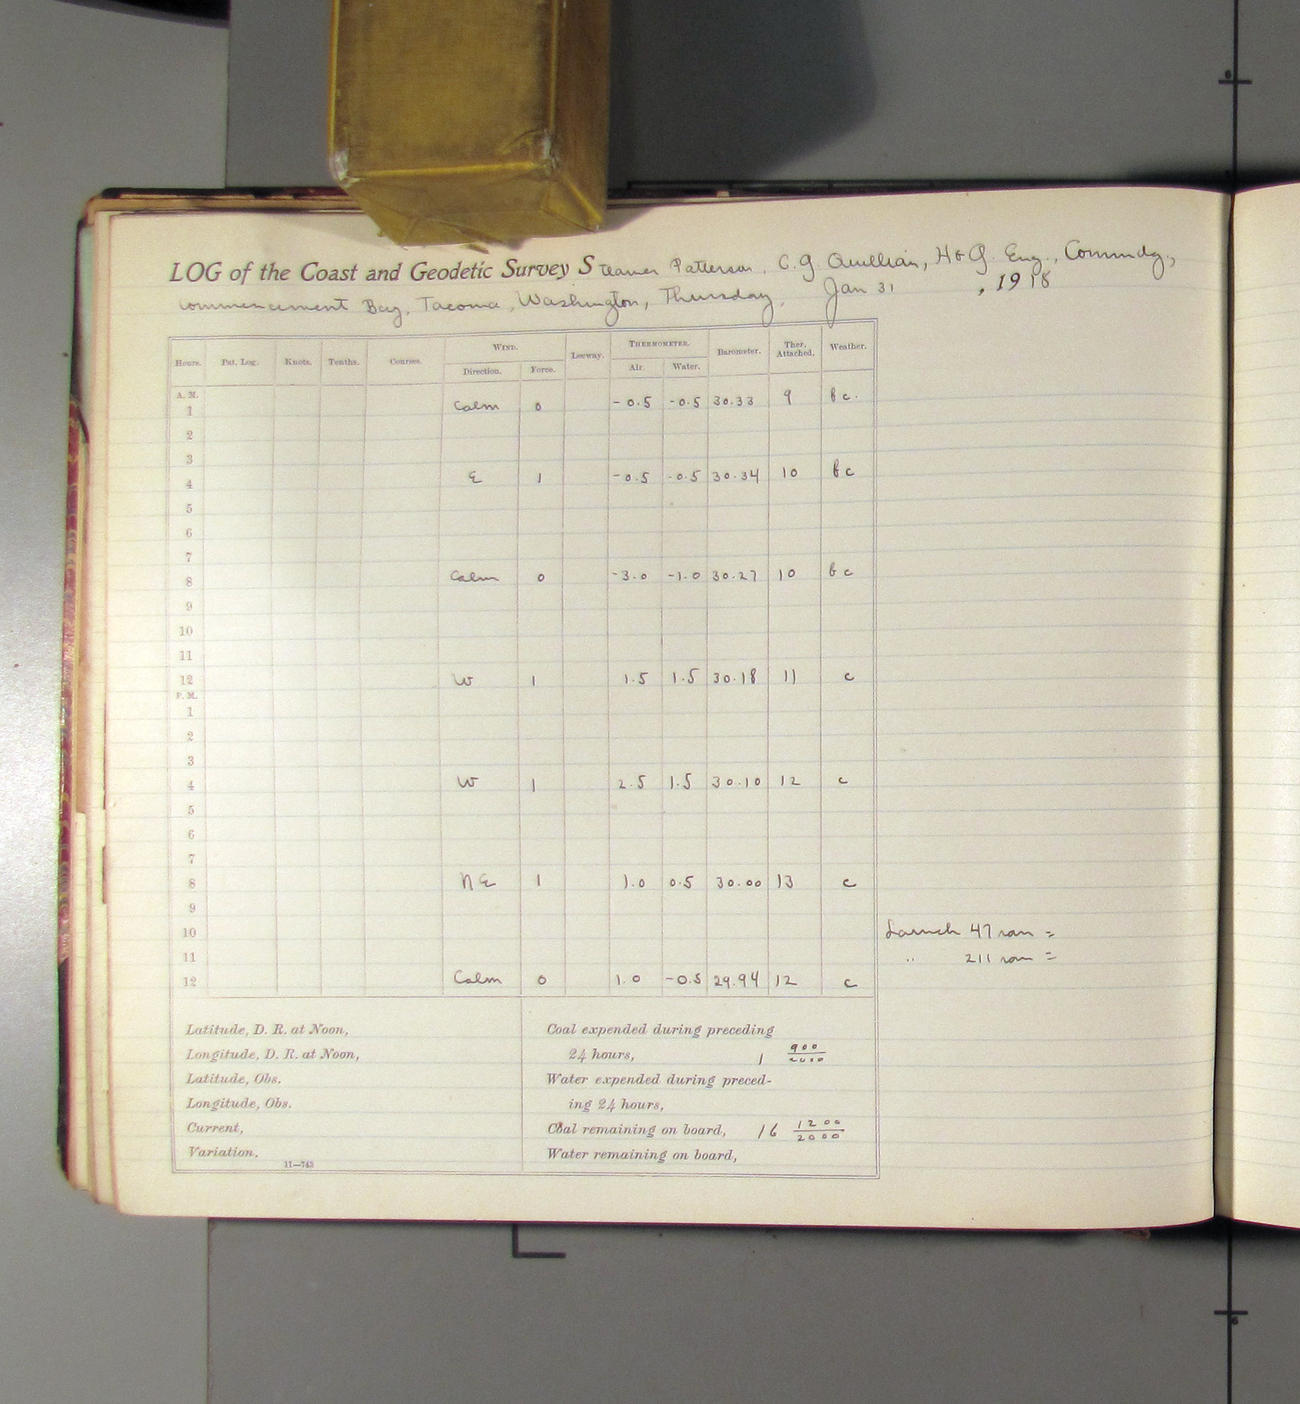 LOG of the Coast and Geodetic Survey Steamer Patterson, C.G. Quillian, H & G. Eng., Commdg.,
Commencement Bay, Tacoma, Washington, Thursday, Jan 31, 1918
Hours. Pat. Log. Knots. Tenths. Courses. WIND. Leeway. THERMOMETER. Barometer. Ther. Attached. Weather.
Direction. Force. Air. Water.
A. M.
1 Calm 0 -0.5 -0.5 30.33 9 b c.
2
3
4 E 1 -0.5 -0.5 30.34 10 b c
5
6
7
8 Calm 0 -3.0 -1.0 30.27 10 b c
9
10
11
12 W 1 1.5 1.5 30.18 11 c
P. M.
1
2
3
4 W 1 2.5 1.5 30.10 12 c
5
6
7
8 NE 1 1.0 0.5 30.00 13 c
9
10 Launch 47 ran =
11 " 211 ran =
12 Calm 0 1.0 -0.5 29.94 12 c
Latitude, D. R. at Noon,
Longitude, D. R. at Noon,
Latitude, Obs.
Longitude, Obs.
Current,
Variation.
11—743
Coal expended during preceding
24 hours, 1 900/2000
Water expended during preced-
ing 24 hours,
Coal remaining on board, 16 1200/2000
Water remaining on board,
6
6